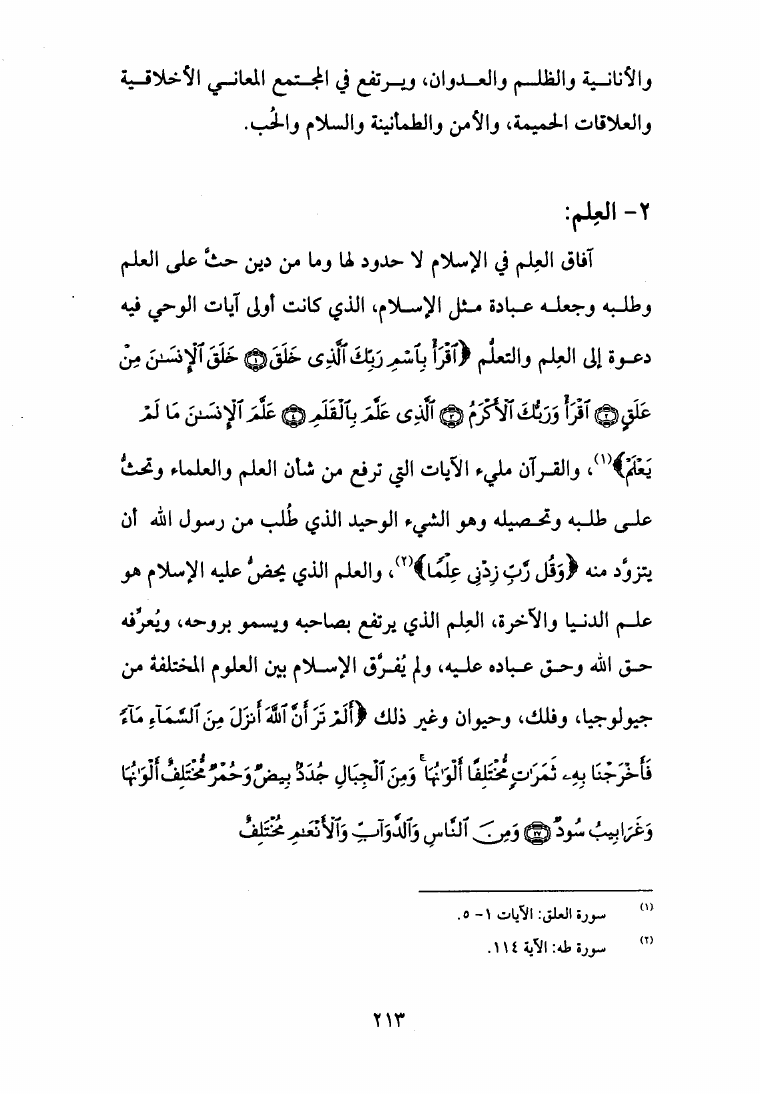 والأنانية والظلم والعدوان، ويرتفع في المجتمع المعاني الأخلاقية
والعلاقات الحميمة، والأمن والطمأنينة والسلام والحُب.
٢- العِلم:
آفاق العِلم في الإسلام لا حدود لها وما من دين حثَّ على العلم
وطلبه وجعله عبادة مثل الإسلام، الذي كانت أولى آيات الوحي فيه
دعوة إلى العِلم والتعلُّم ﴿ٱقْرَأْ بِٱسْمِ رَبِّكَ ٱلَّذِى خَلَقَ ۝١ خَلَقَ ٱلْإِنسَـٰنَ مِنْ
عَلَقٍ ۝٢ ٱقْرَأْ وَرَبُّكَ ٱلْأَكْرَمُ ۝٣ ٱلَّذِى عَلَّمَ بِٱلْقَلَمِ ۝٤ عَلَّمَ ٱلْإِنسَـٰنَ مَا لَمْ
يَعْلَمْ﴾(١)، والقرآن مليء الآيات التي ترفع من شأن العلم والعلماء وتحثُّ
على طلبه وتحصيله وهو الشيء الوحيد الذي طُلب من رسول الله أن
يتزوَّد منه ﴿وَقُل رَّبِّ زِدْنِى عِلْمًا﴾(٢)، والعلم الذي يحضُّ عليه الإسلام هو
علم الدنيا والآخرة، العِلم الذي يرتفع بصاحبه ويسمو بروحه، ويُعرِّفه
حق الله وحق عباده عليه، ولم يُفرَّق الإسلام بين العلوم المختلفة من
جيولوجيا، وفلك، وحيوان وغير ذلك ﴿أَلَمْ تَرَ أَنَّ ٱللَّهَ أَنزَلَ مِنَ ٱلسَّمَآءِ مَآءً
فَأَخْرَجْنَا بِهِۦ ثَمَرَٰتٍ مُّخْتَلِفًا أَلْوَٰنُهَا ۚ وَمِنَ ٱلْجِبَالِ جُدَدٌۢ بِيضٌ وَحُمْرٌ مُّخْتَلِفٌ أَلْوَٰنُهَا
وَغَرَابِيبُ سُودٌ ۝٢٧ وَمِنَ ٱلنَّاسِ وَٱلدَّوَآبِّ وَٱلْأَنْعَـٰمِ مُخْتَلِفٌ
(١) سورة العلق: الآيات ١- ٥.
(٢) سورة طه: الآية ١١٤.
٢١٣